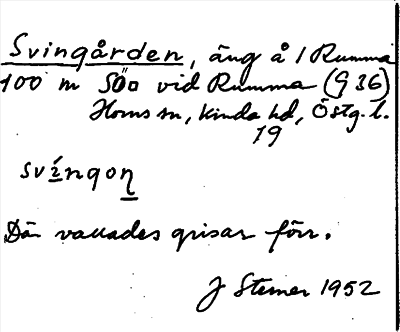 Svingården, äng å 1 Rumma
100 m SÖ vid Rumma (G 36)
Horns sn, Kinda hd, Östg. l.
19
svíngoꞑ
Där vallades grisar förr.
J Sterner 1952